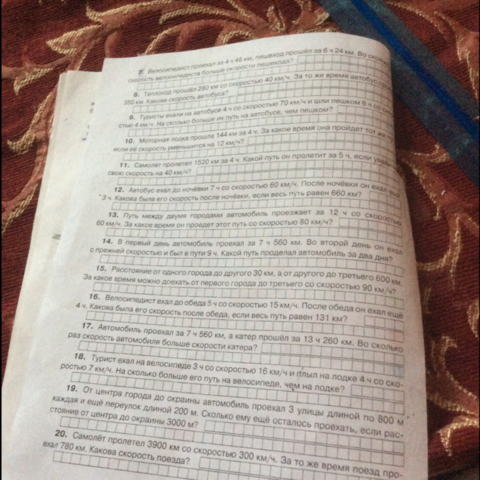 7. Велосипедист проехал за 4 ч 48 км, пешеход прошёл за 6 ч 24 км. Во
скорость велосипедиста больше скорости пешехода?
8. Теплоход прошёл 280 км со скоростью 40 км/ч. За то же время автобус
350 км. Какова скорость автобуса?
9. Туристы ехали на автобусе 4 ч со скоростью 70 км/ч и шли пешком 6 ч со
стью 4 км/ч. На сколько больше их путь на автобусе, чем пешком?
10. Моторная лодка прошла 144 км за 4 ч. За какое время она пройдет тот же
если её скорость уменьшится на 12 км/ч?
11. Самолёт пролетел 1520 км за 4 ч. Какой путь он пролетит за 5 ч, если
свою скорость на 40 км/ч?
12. Автобус ехал до ночёвки 7 ч со скоростью 60 км/ч. После ночёвки он ехал
3 ч. Какова была его скорость после ночёвки, если весь путь равен 660 км?
13. Путь между двумя городами автомобиль проезжает за 12 ч со скоростью
60 км/ч. За какое время он проедет этот путь со скоростью 80 км/ч?
14. В первый день автомобиль проехал за 7 ч 560 км. Во второй день он ехал
с прежней скоростью и был в пути 9 ч. Какой путь проделал автомобиль за два дня?
15. Расстояние от одного города до другого 30 км, а от другого до третьего 600 км.
За какое время можно доехать от первого города до третьего со скоростью 90 км/ч?
16. Велосипедист ехал до обеда 5 ч со скоростью 15 км/ч. После обеда он ехал ещё
4 ч. Какова была его скорость после обеда, если весь путь равен 131 км?
17. Автомобиль проехал за 7 ч 560 км, а катер прошёл за 13 ч 260 км. Во сколько
раз скорость автомобиля больше скорости катера?
18. Турист ехал на велосипеде 3 ч со скоростью 16 км/ч и плыл на лодке 4 ч со ско-
ростью 7 км/ч. На сколько больше его путь на велосипеде, чем на лодке?
19. От центра города до окраины автомобиль проехал 3 улицы длиной по 800 м
каждая и ещё переулок длиной 200 м. Сколько ему ещё осталось проехать, если рас-
стояние от центра до окраины 3000 м?
20. Самолёт пролетел 3900 км со скоростью 300 км/ч. За то же время поезд про-
ехал 780 км. Какова скорость поезда?